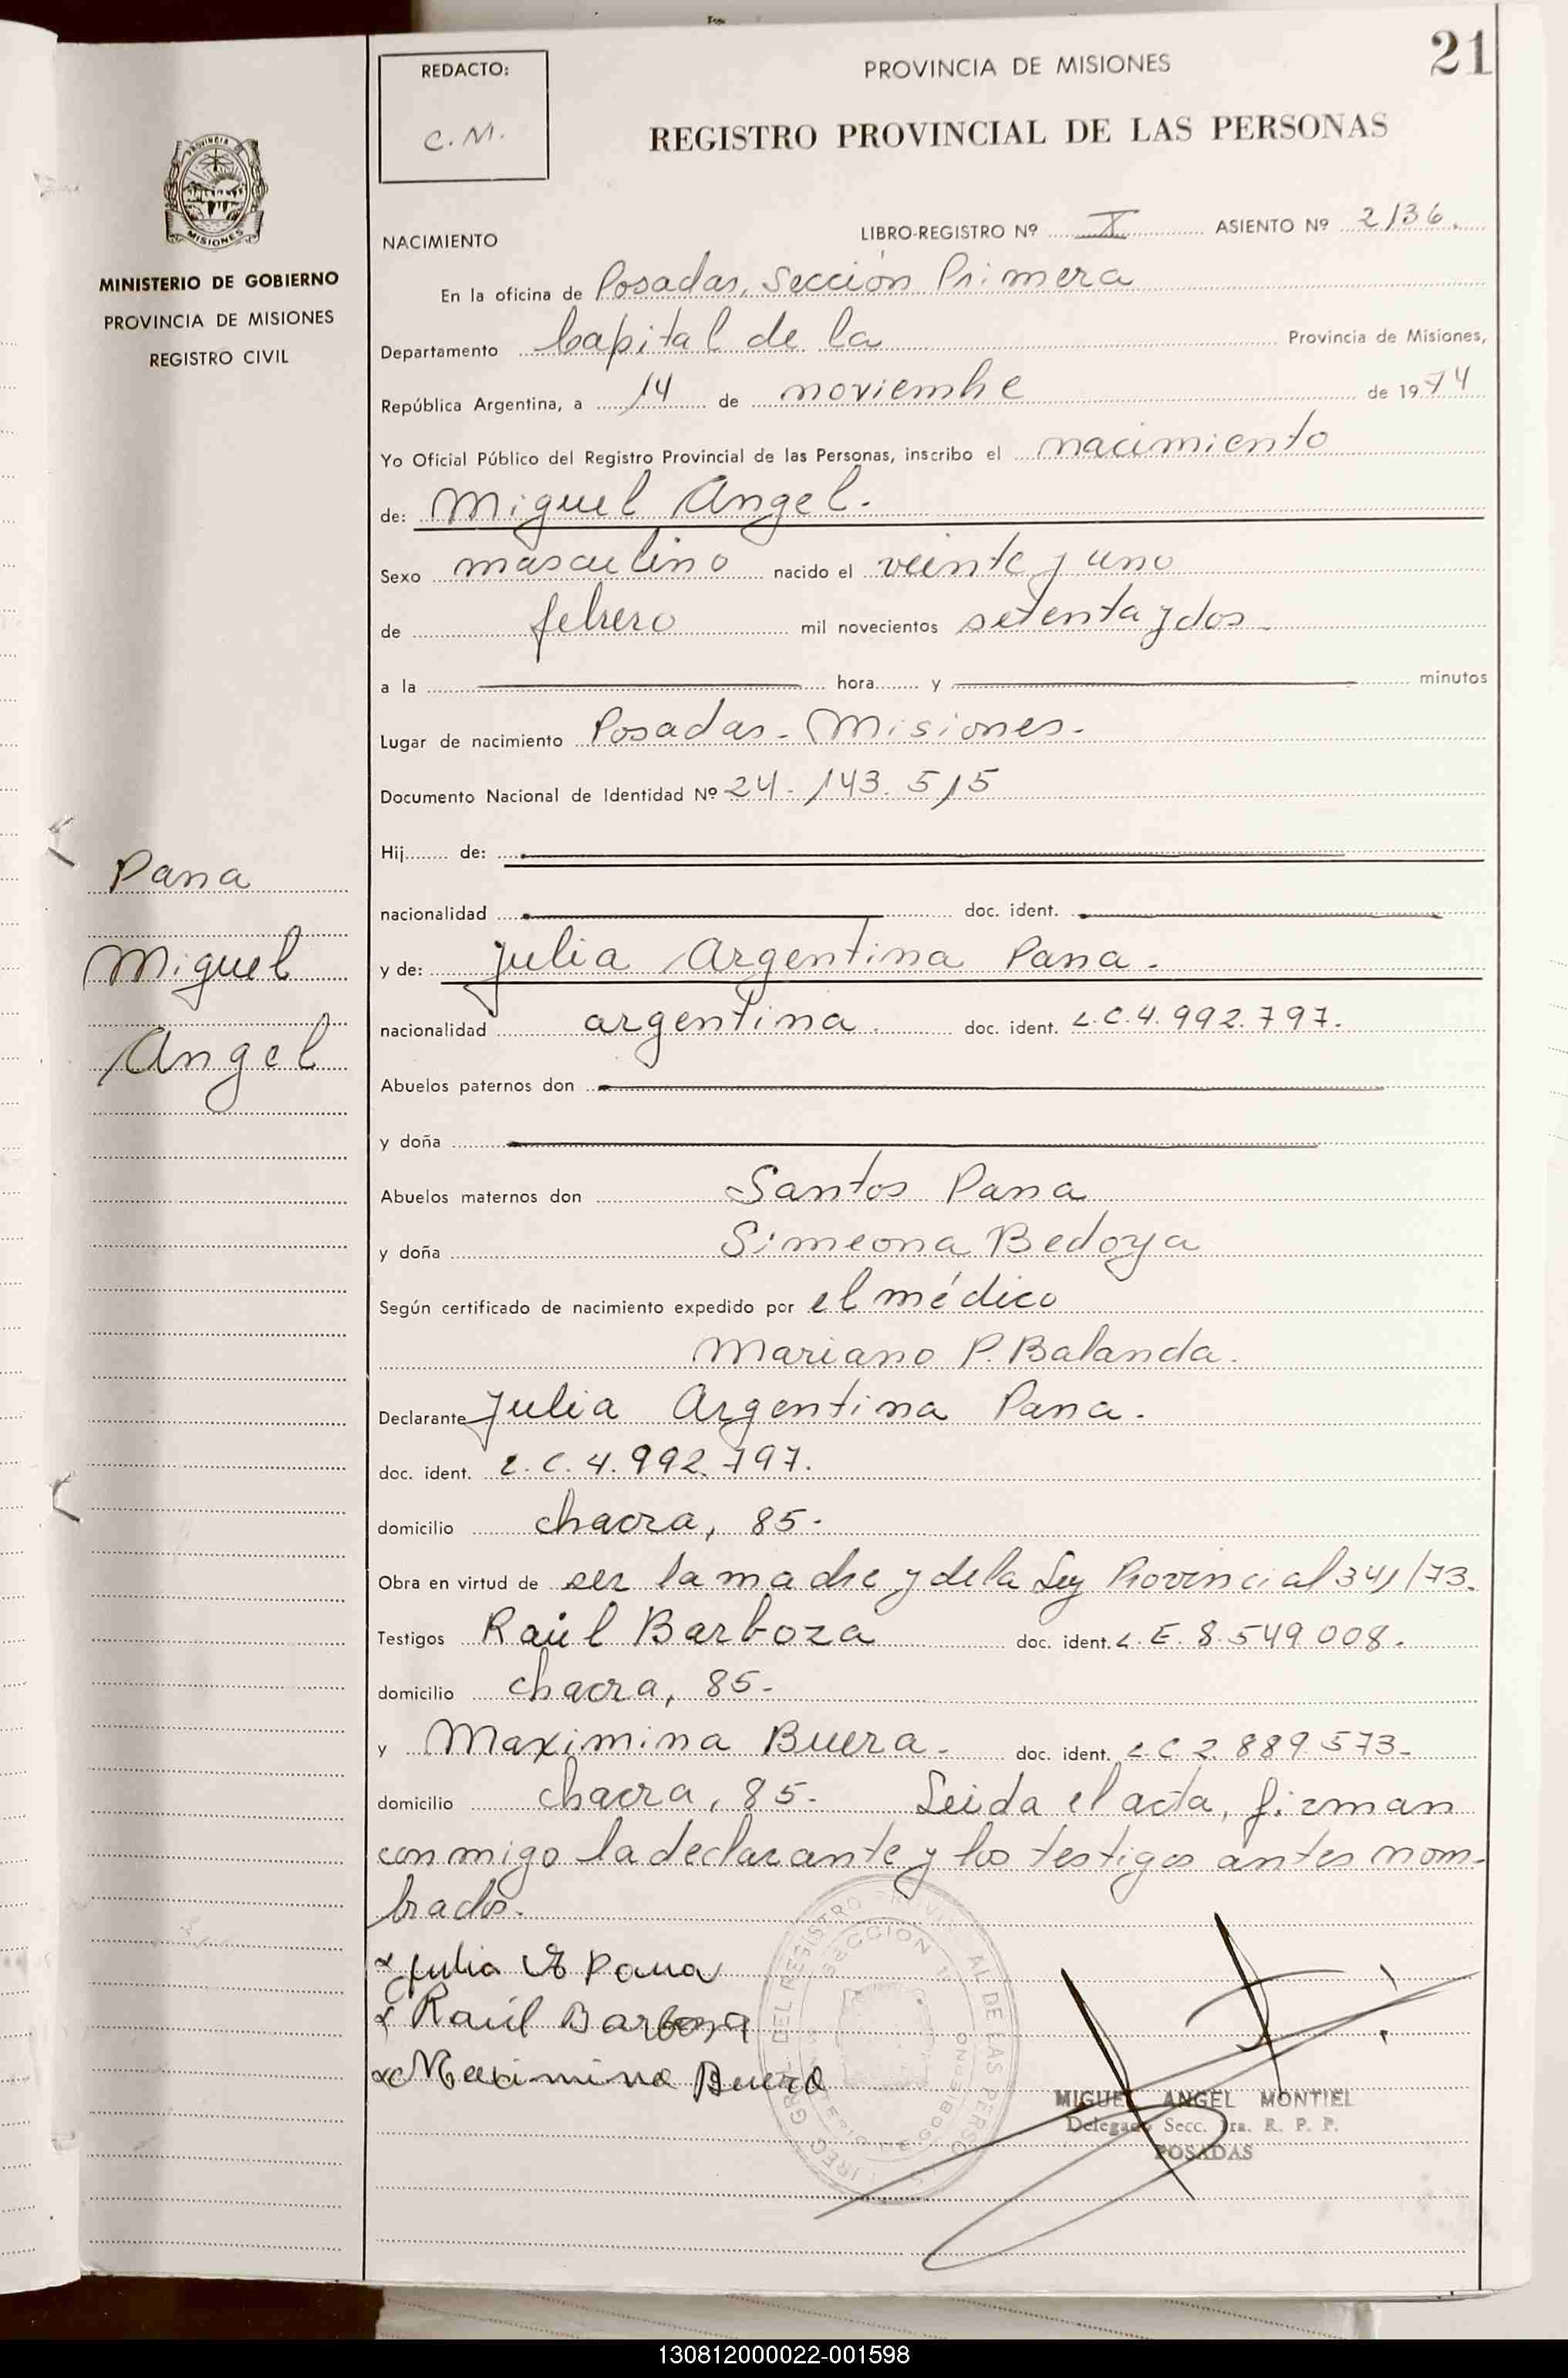 21
REDACTO:
C.M.
PROVINCIA DE MISIONES
REGISTRO PROVINCIAL DE LAS PERSONAS
PROVINCIA DE
MISIONES
MINISTERIO DE GOBIERNO
PROVINCIA DE MISIONES
REGISTRO CIVIL
NACIMIENTO LIBRO-REGISTRO Nº X ASIENTO Nº 2136.
En la oficina de Posadas, Sección Primera
Departamento Capital de la Provincia de Misiones,
República Argentina, a 14 de noviembre de 1974
Yo Oficial Público del Registro Provincial de las Personas, inscribo el nacimiento
de: Miguel Angel.
Sexo masculino nacido el veinte y uno
de febrero mil novecientos setenta y dos
a la hora y minutos
Lugar de nacimiento Posadas - Misiones.
Documento Nacional de Identidad Nº 24.143.515
Hij de:
nacionalidad doc. ident.
Pana
Miguel
Angel
y de: Julia Argentina Pana.
nacionalidad argentina. doc. ident. L.C.4.992.797.
Abuelos paternos don
y doña
Abuelos maternos don Santos Pana
y doña Simeona Bedoya
Según certificado de nacimiento expedido por el médico
Mariano P. Balanda.
Declarante Julia Argentina Pana.
doc. ident. L.C.4.992.797.
domicilio chacra, 85.
Obra en virtud de ser la madre y de la Ley Provincial 341/73.
Testigos Raúl Barboza doc. ident. L.E.8.549.008.
domicilio chacra, 85.
y Maximina Buera. doc. ident. L.C 2.889.573.
domicilio chacra, 85. Leida el acta, firman
conmigo la declarante y los testigos antes nom-
brados.
Julia A Pana
Raúl Barboza
Maximina Buera
SECCION 1ª
MIGUEL ANGEL MONTIEL
Delegado Secc. 1ra. R. P. P.
POSADAS
130812000022-001598